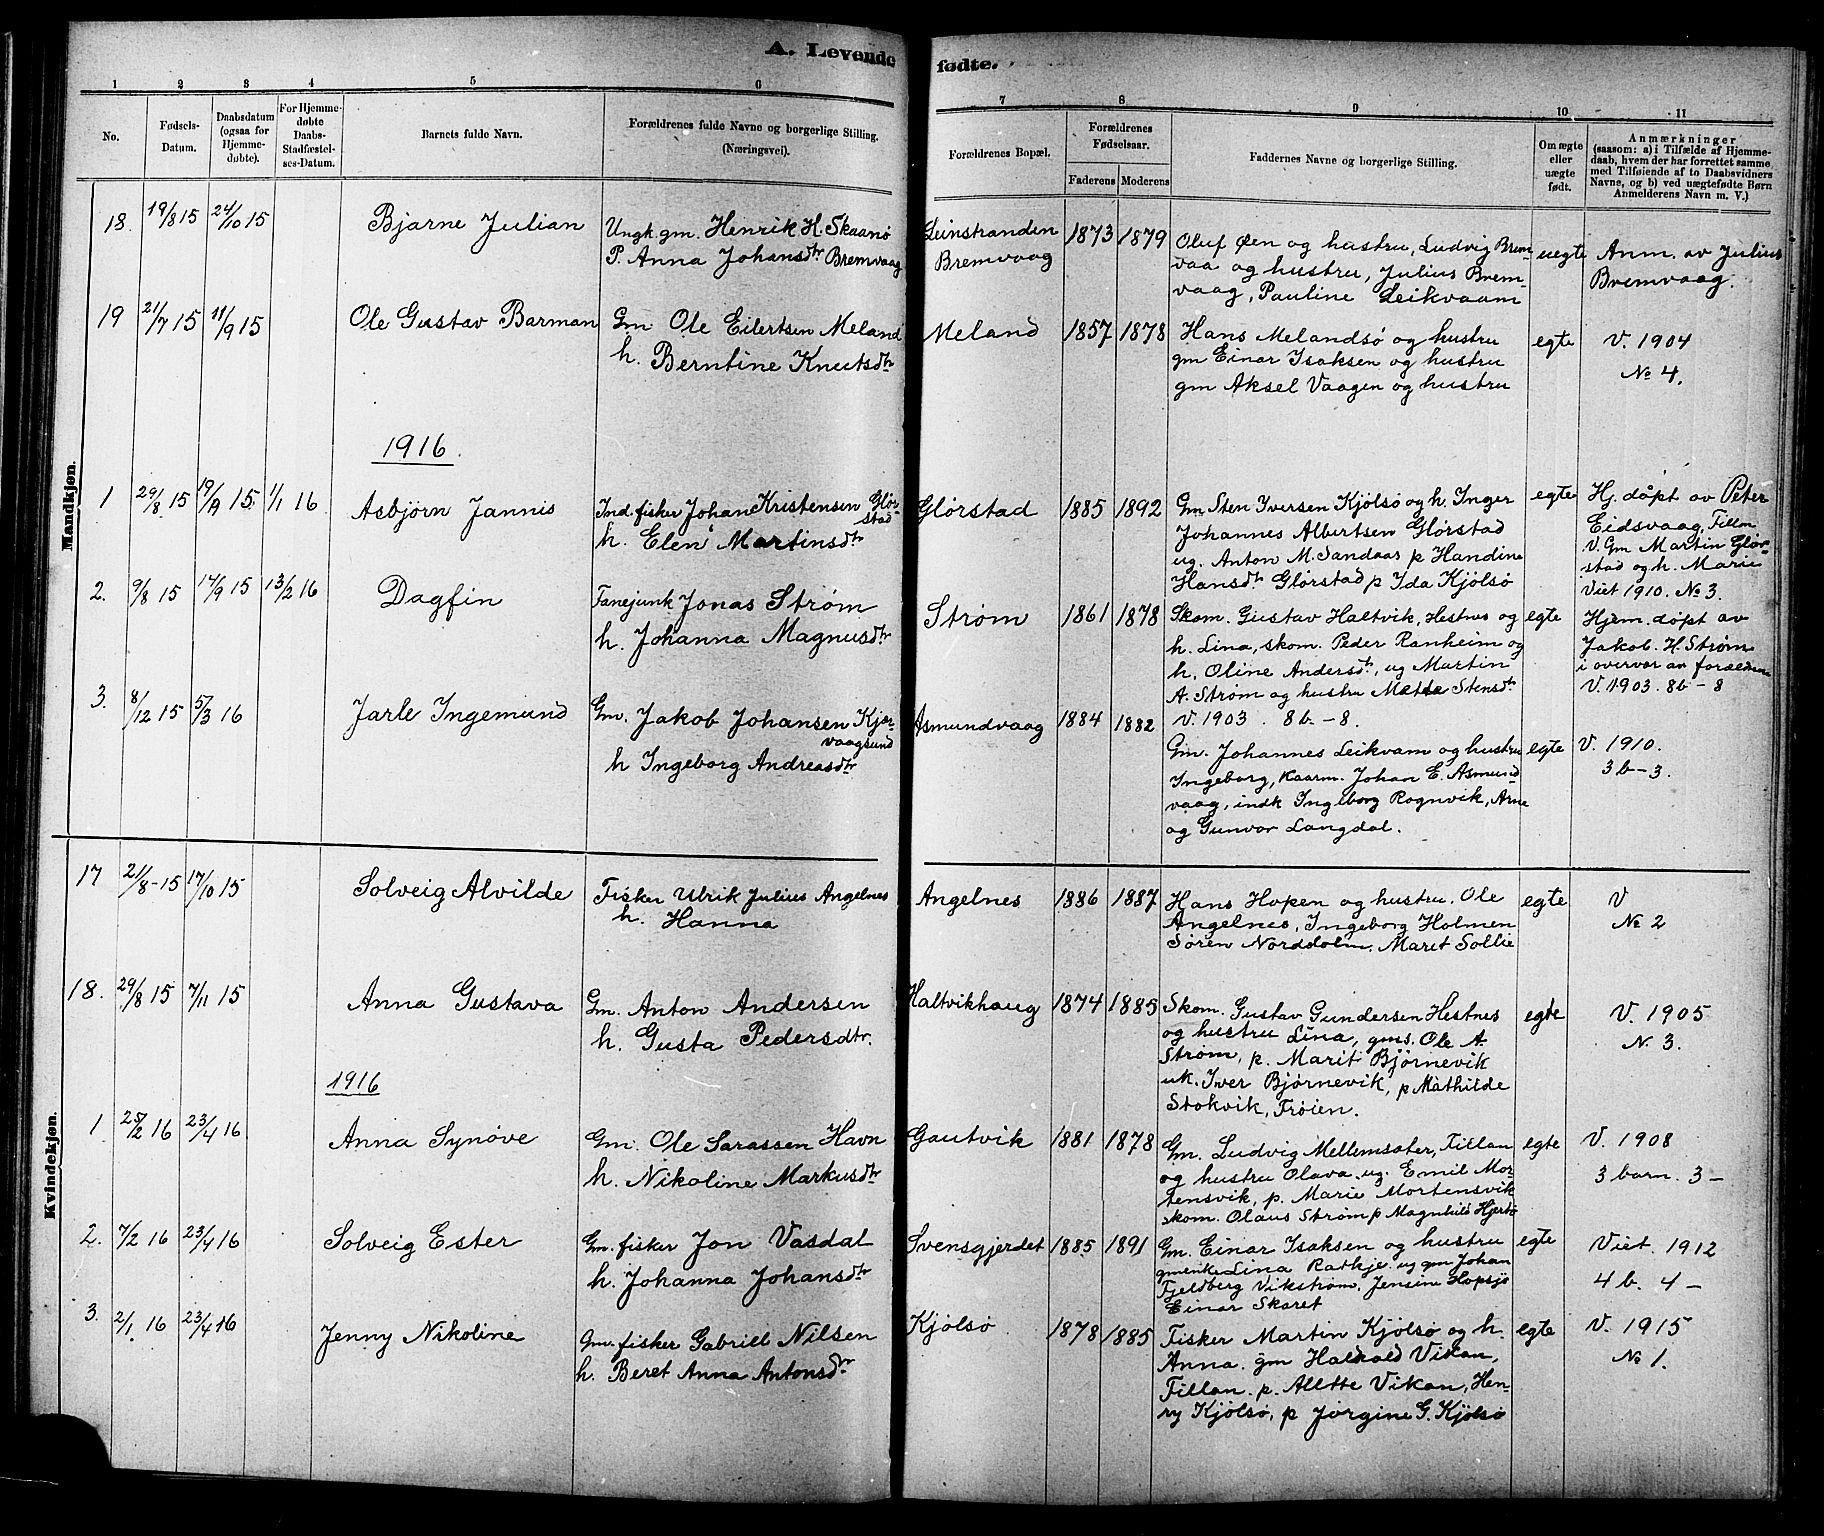 A. Levende fødte.
1 2 3 4 5 6 7 8 9 10 11
No.
Fødsels-
Datum.
Daabsdatum
(ogsaa for
Hjemme-
døbte).
For Hjemme-
døbte
Daabs-
Stadfæstel-
ses-Datum.
Barnets fulde Navn.
Forældrenes fulde Navne og borgerlige Stilling.
(Næringsvei).
Forældrenes Bopæl.
Forældrenes
Fødselsaar.
Faderens Moderens
Faddernes Navne og borgerlige Stilling.
Om ægte
eller
uægte
født.
Anmærkninger
(saasom: a) i Tilfælde af Hjemme-
daab, hvem der har forrettet samme,
med Tilføiende af to Daabsvidners
Navne, og b) ved uægtefødte Børn
Anmelderens Navn m. V.)
Mandkjøn.
18. 19/8 15 24/10 15
Bjarne Julian
Ungk. gm. Henrik H. Skaanø
P. Anna Johansdtr Bremvaag
Leinstranden
Bremvaag
1873 1879
Oluf Øen og hustru, Ludvig Brem-
vaa og hustru, Julius Brem-
vaag, Pauline Leikvaam
uegte
Anm. av Julius
Bremvaag.
19 21/7 15 11/9 15
Ole Gustav Barman
Gm Ole Eilertsen Meland
h. Berntine Knutsdtr
Meland
1857 1878
Hans Melandsø og hustru
gm Einar Isaksen og hustru
gm Aksel Vaagen og hustru
egte
V. 1904
No 4.
1916.
1 29/8 15 19/9 15 1/1 16
Asbjørn Jannis
Ind. fisker Johan Kristensen Glør-
stad
h. Elen Martinsdtr
Glørstad
1885 1892
Gm. Sten Iversen Kjölsö og h. Inger
Johannes Albertsen Glørstad
ug. Anton M. Sandaas p Handine
Hansdtr Glørstad p Ida Kjölsö
egte
Hj. döpt av Peter
Eidsvaag, Fillan
V. Gm Martin Glør-
stad og h. Marie
Viet 1910. No 3.
2. 9/8 15 14/9 15 13/2 16
Dagfin
Fanejunk Jonas Strøm
h. Johanna Magnusdtr
Strøm
1861 1878
Skom. Gustav Haltvik, Hestnes og
h. Lina, skom. Peder Ranheim og
h. Oline Andersdtr, ug Martin
A. Strøm og hustru Mette Stensdtr
V. 1903. 8 b. – 8.
egte
Hjem. döpt av
Jakob. H. Strøm
i overvær av forældrene
V. 1903. 8b – 8
3. 8/12 15 5/3 16
Jarle Ingemund
Gm. Jakob Johansen Kjør-
vaagsund
h Ingeborg Andreasdtr
Asmundvaag
1884 1882
Gm. Johannes Leikvam og hustru
Ingeborg, kaarm. Johan E. Asmund-
vaag, indk Ingeborg Rognvik, Arne
og Gunvor Langdal.
egte
V. 1910.
3 b – 3.
Kvindekjøn.
17 21/8 – 15 17/10 15
Solveig Alvilde
Fisker Ulrik Julius Angelnes
h. Hanna
Angelnes
1886 1887
Hans Hopen og hustru. Ole
Angelnes, Ingeborg Holmen
Søren Norddolm. Maret Sollie
egte
V
No 2
18. 29/8 15 7/11 15
Anna Gustava
Gm. Anton Andersen
h. Gusta Pedersdtr.
Haltvikhaug
1874 1885
Skom. Gustav Gundersen Hestnes
og hustru Lina, gms. Ole A
Strøm, p. Marit Bjørnevik
uk. Iver Bjørnevik, p Mathilde
Stokvik, Frøien.
egte
V. 1905
N. 3.
1916
1. 25/2 16 23/4 16
Anna Synøve
Gm. Ole Sarassen Havn
h. Nikoline Markusdtr
Gautvik
1881 1878
Gm. Ludvig Mellemsæter, Fillan
og hustru Olava. ug. Emil Mor-
tensvik, p. Marie Mortensvik
skom. Olaus Strøm p Magnhild Hjertø
egte
V. 1908
3 barn. 3 –
2. 7/2 16 23/4 16
Solveig Ester
Gm. fisker Jon Vasdal
h. Johanna Johansdtr
Svensgjerdet
1885 1891
Gm. Einar Isaksen og hustru
gmenke Lina Rathje ug gm Johan
Fjeldberg Vikstrøm, Jensin Hopsjø
Einar Skaret
egte
Viet. 1912
4 b. 4 –
3. 2/1. 16 23/4 16
Jenny Nikoline
Gm. fisker Gabriell Nilsen
h. Beret Anna Antonsdtr
Kjölsö
1878 1885
Fisker Martin Kjölsö og h.
Anna. gm Haldvald Vikan,
Fillan. p. Allette Vikan, Hen-
ry Kjölsö, p Jørgine G. Kjölsö
egte
V. 1915
No 1.